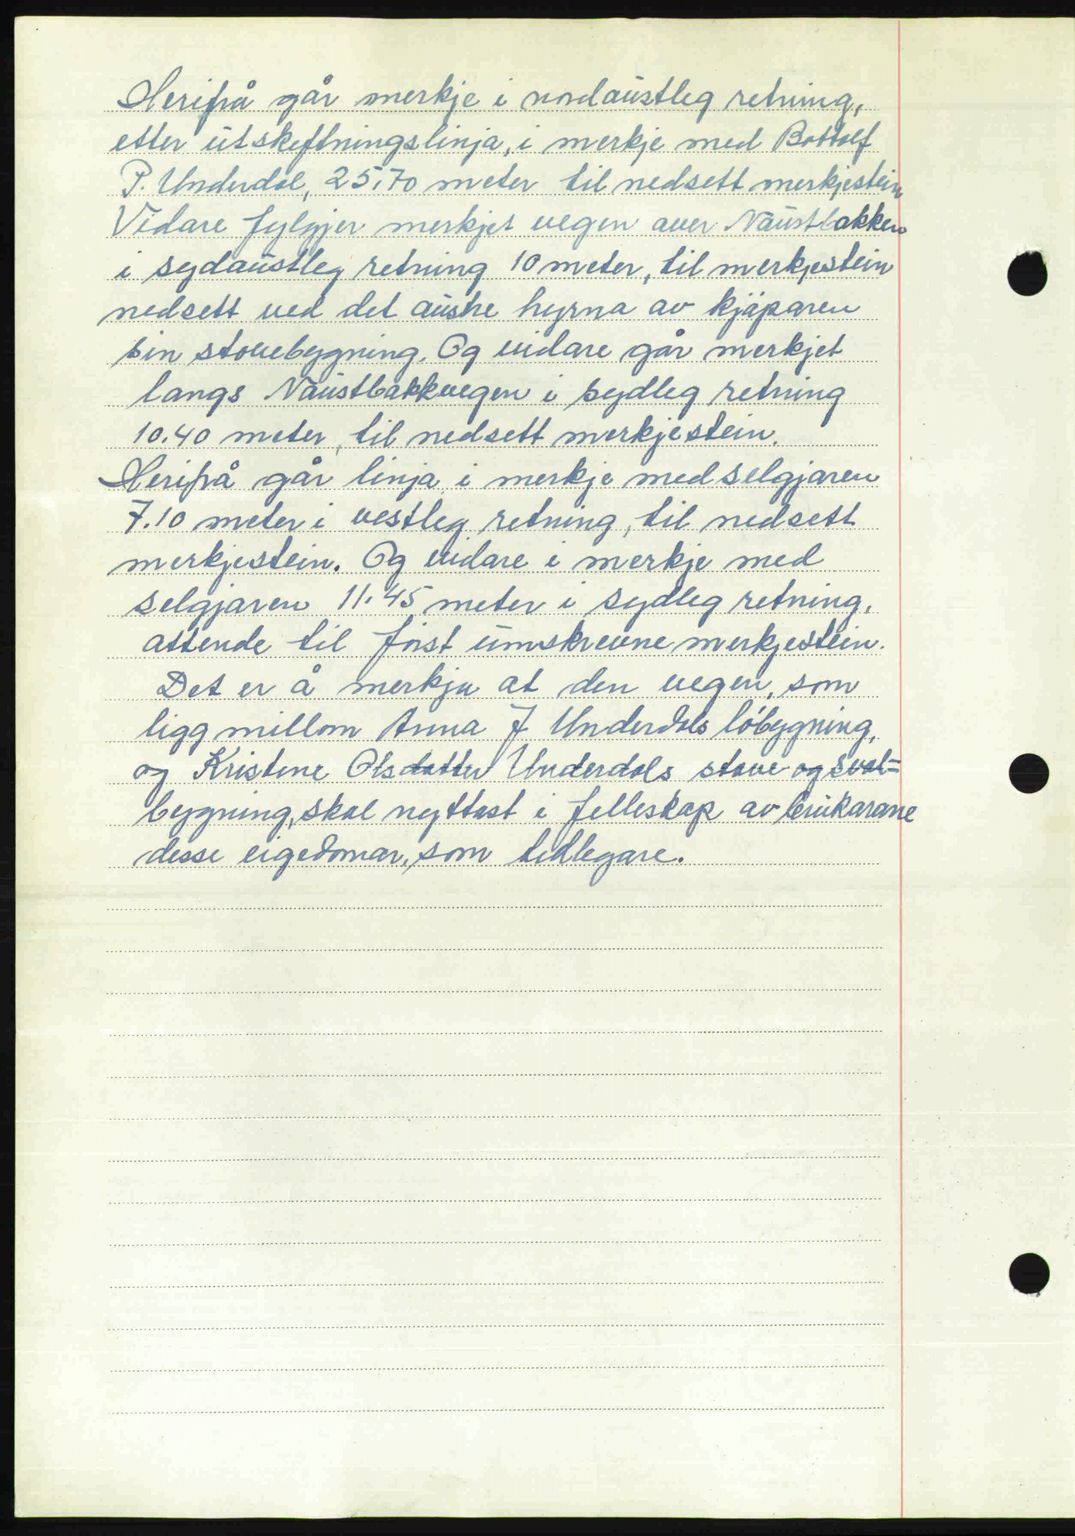 Herifrå går merkje i nordaustleg retning,
etter utskiftningslinja, i merkje med Bottolf
P. Underdal, 25.70 meter til nedsett merkjestein
Vidare fylgjer merkjet vegen over Naustbakken
i sydaustleg retning 10 meter, til merkjestein
nedsett ved det austre hyrna av kjøparen
sin stovebygning. Og vidare går merkjet
langs Naustbakkvegen i sydleg retning
10.40 meter, til nedsett merkjestein.
Herifrå går linja i merkje med selgjaren
7.10 meter i vestleg retning, til nedsett
merkjestein. Og vidare i merkje med
selgjaren 11.45 meter i sydleg retning,
attende til først umskrevne merkjestein.
Det er å merkja at den vegen, som
ligg millom Anna J Underdals løbygning,
og Kristine Olsdatter Underdals stove og sval=
bygning, skal nyttast i felleskap av brukarane
desse eigedomar, som tidlegare.